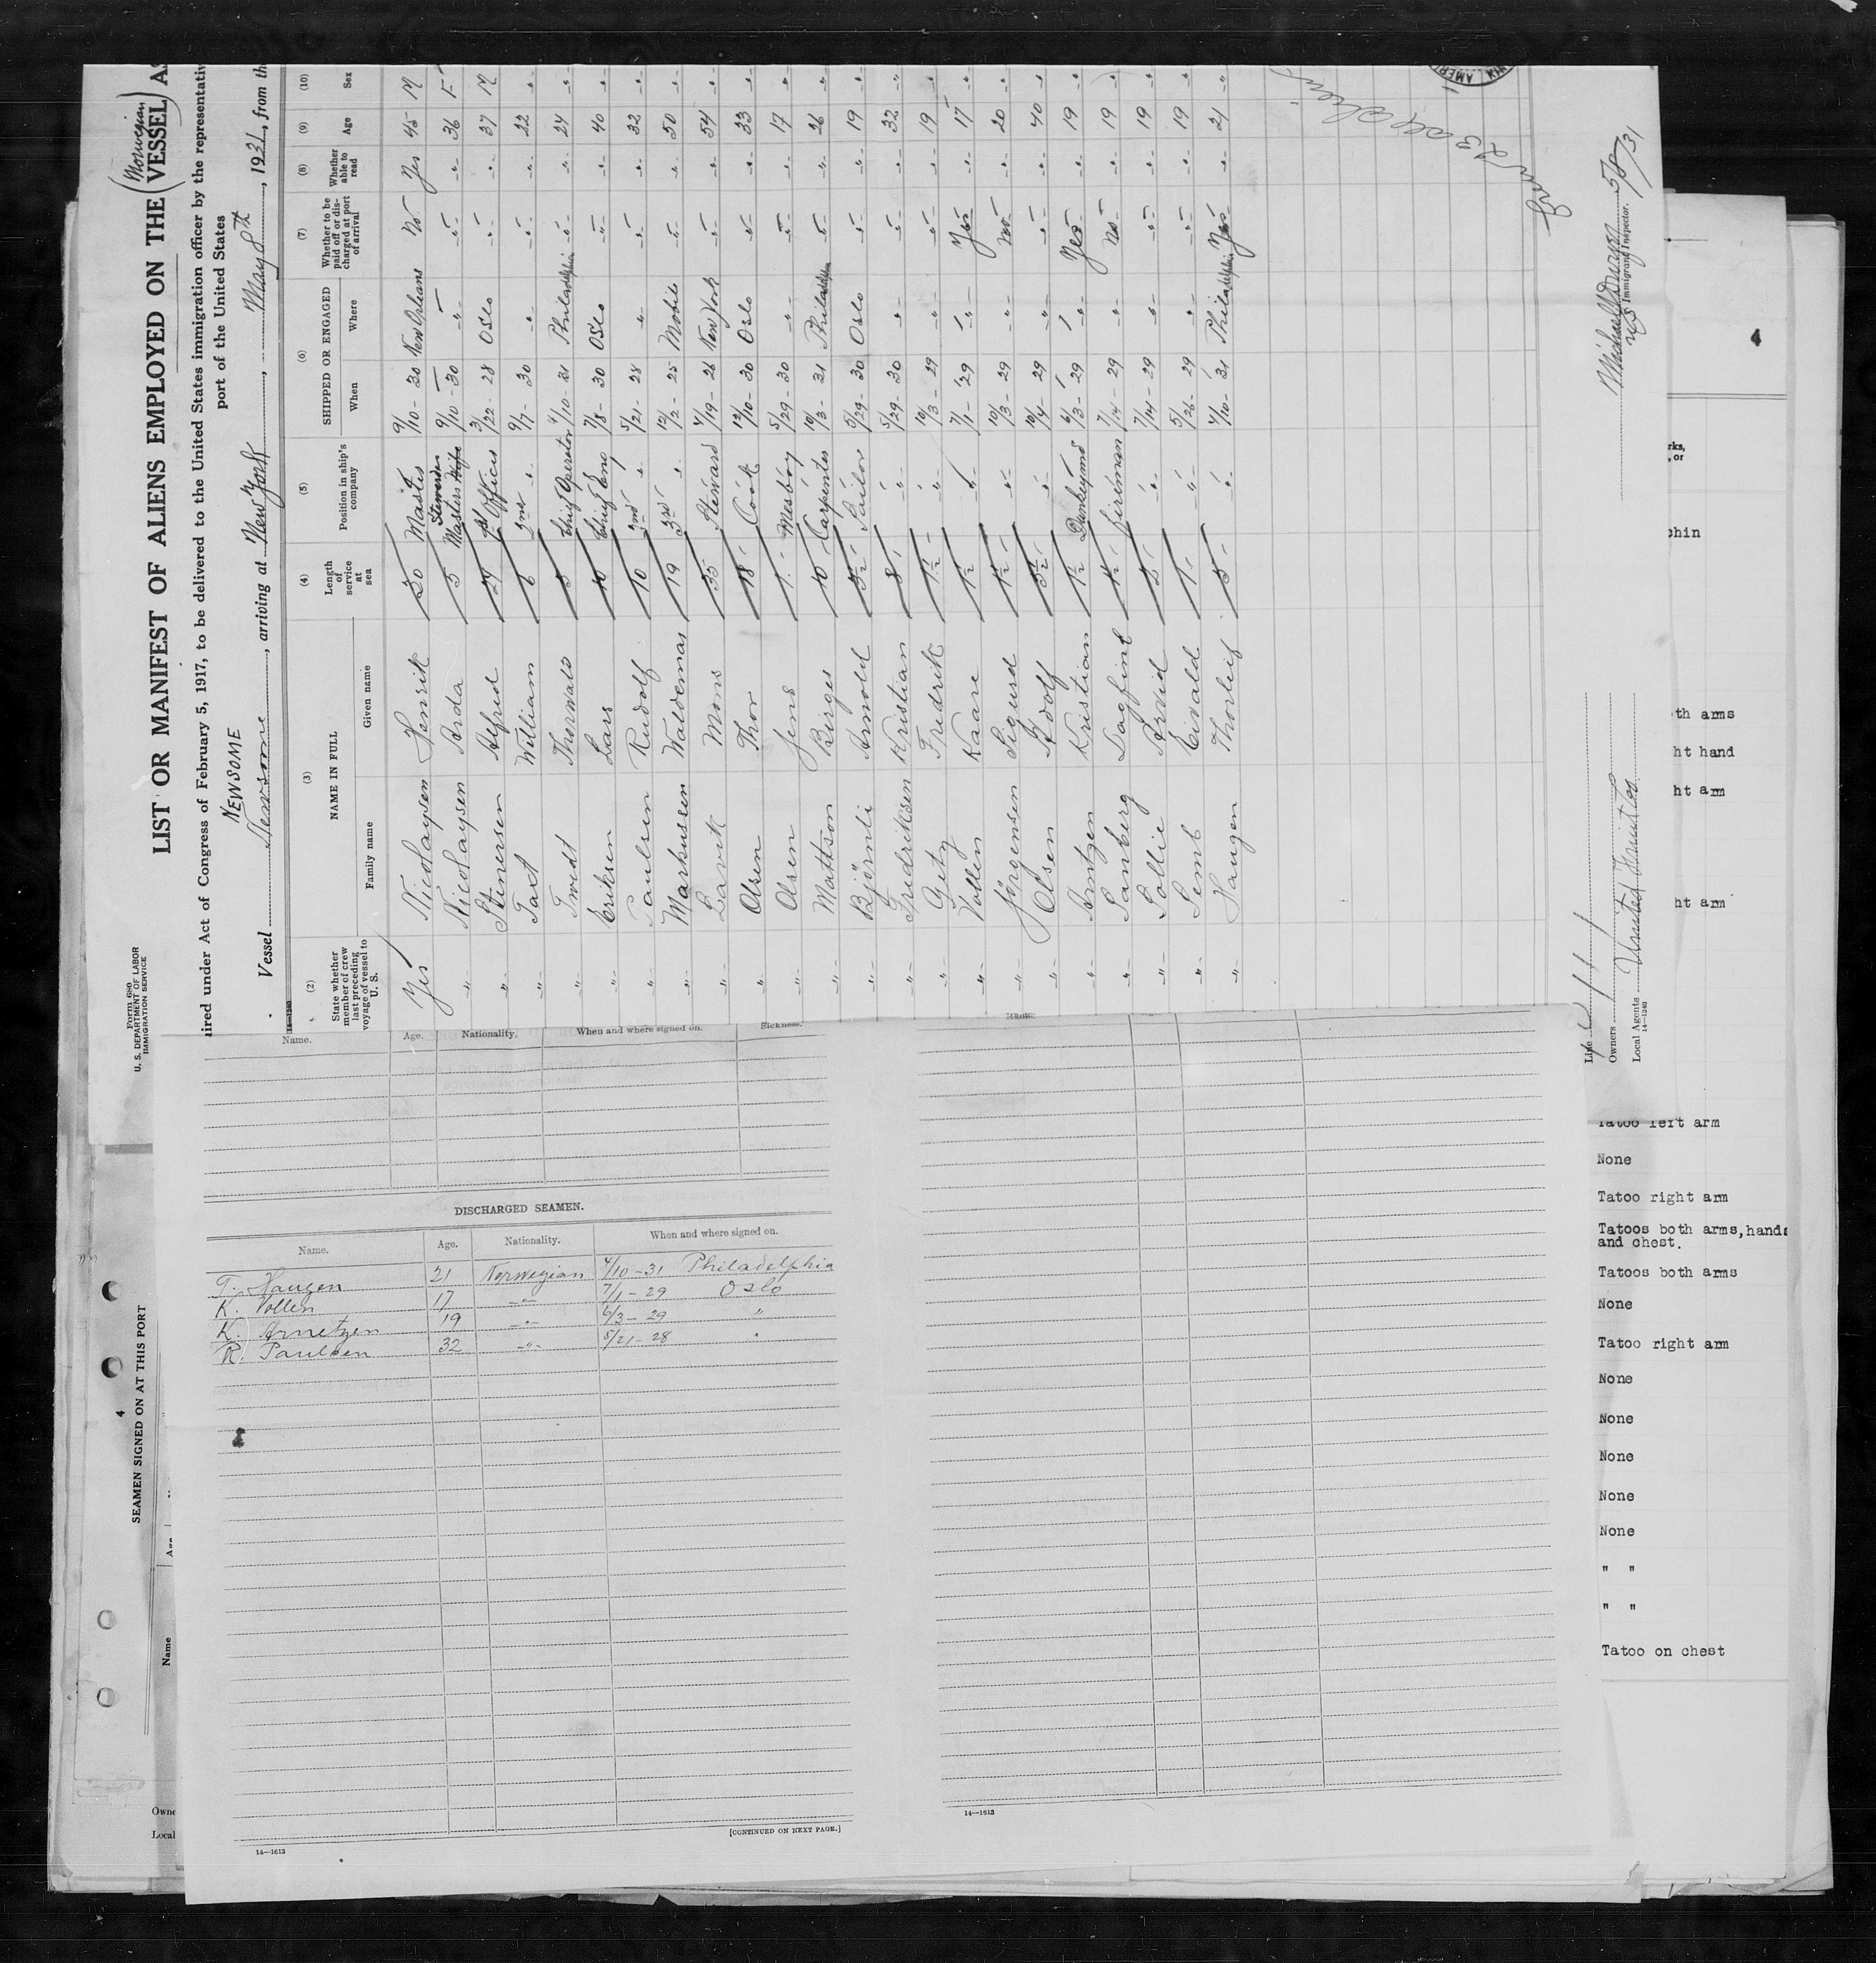 Form 680
U. S. DEPARTMENT OF LABOR
IMMIGRATION SERVICE
LIST OR MANIFEST OF ALIENS EMPLOYED ON THE (Norwegian) VESSEL AS
uired under Act of Congress of February 5, 1917, to be delivered to the United States immigration officer by the representativ
port of the United States
NEWSOME
Vessel Newsome, arriving at New York, May 8th, 1931, from th
14—1240
(2) (3) (4) (5) (6) (7) (8) (9) (10)
State whether member of crew last preceding voyage of vessel to U. S. NAME IN FULL Length of service at sea Position in ship's company SHIPPED OR ENGAGED Whether to be paid off or discharged at port of arrival Whether able to read Age Sex
Family name Given name When Where
Yes Nicolaysen Henrik 30 Master 9/10-30 New Orleans No Yes 45 M
-"- Nicolaysen Arda 5 Stewardess Masters Wife 9/10-30 -"- -"- -"- 36 F
-"- Stenersen Alfred 29 1st Officer 3/22-28 Oslo -"- -"- 37 M
-"- Taxt William 6 2nd -"- 9/7-30 -"- -"- -"- 22 -"-
-"- Twedt Thorwald 5 Chief Operator 4/10-31 Philadelphia -"- -"- 24 -"-
-"- Eriksen Lars 10 Chief Eng 7/8-30 Oslo -"- -"- 40 -"-
-"- Paulsen Rudolf 10 2nd -"- 5/21-28 -"- -"- -"- 32 -"-
-"- Markussen Waldemar 19 3rd -"- 12/2-25 Mobile -"- -"- 50 -"-
-"- Lavik Mons 35 Steward 4/19-26 New York -"- -"- 54 -"-
-"- Olsen Thor 18 Cook 12/10-30 Oslo -"- -"- 33 -"-
-"- Olsen Jens 1 Mesboy 5/29-30 -"- -"- -"- 17 -"-
-"- Mattson Birger 10 Carpenter 10/3-31 Philadelphia -"- -"- 26 -"-
-"- Björnli Arnold 3½ Sailor 5/29-30 Oslo -"- -"- 19 -"-
-"- Fredriksen Kristian 8 -"- 5/29-30 -"- -"- -"- 32 -"-
-"- Getz Fredrik 1½ -"- 10/3-29 -"- -"- -"- 19 -"-
-"- Vollen Kaare 1½ -"- 7/1-29 -"- Yes -"- 17 -"-
-"- Jörgensen Sigurd 1½ -"- 10/3-29 -"- No -"- 20 -"-
-"- Olsen Adolf -"- 10/4-29 -"- -"- -"- 40 -"-
-"- Arntzen Kristian 1½ Dunkeyman 6/3-29 -"- Yes -"- 19 -"-
-"- Samberg Dagfint 1½ fireman 7/14-29 -"- No -"- 19 -"-
-"- Sollie Arvid 2 -"- 7/14-29 -"- -"- -"- 19 -"-
-"- Semb Eivald 1 -"- 5/26-29 -"- -"- -"- 19 -"-
-"- Haugen Thorleif 5 -"- 4/10-31 Philadelphia Yes -"- 21 -"-
AMERI
5/8/31
Immigrant Inspector.
Line
Owners
Local Agents United Fruit Co
14—1240
Name. Age. Nationality. When and where signed on. Sickness.
DISCHARGED SEAMEN.
Name. Age. Nationality. When and where signed on.
T. Haugen 21 Norwegian 4/10-31 Philadelphia
K. Vollen 17 -"- 7/1-29 Oslo
K. Arnetzen 19 -"- 6/3-29 "
R. Paulsen 32 -"- 5/21-28 "
[CONTINUED ON NEXT PAGE.]
14—1613
14—1613
4
SEAMEN SIGNED ON AT THIS PORT
Name
Age
Owne
Local
4
rks,
, or
phin
th arms
ht hand
ht arm
ht arm
Tatoo left arm
None
Tatoo right arm
Tatoos both arms,hands
and chest.
Tatoos both arms
None
Tatoo right arm
None
None
None
None
None
" "
" "
Tatoo on chest